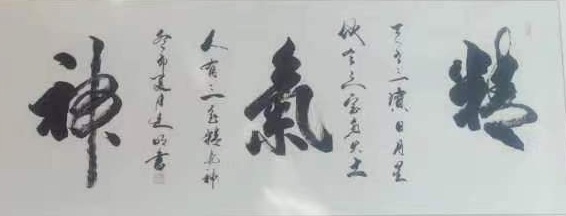 精
天有三寶日月星
地有三宝水火土
氣
人有三宝精气神
夏月 書
神